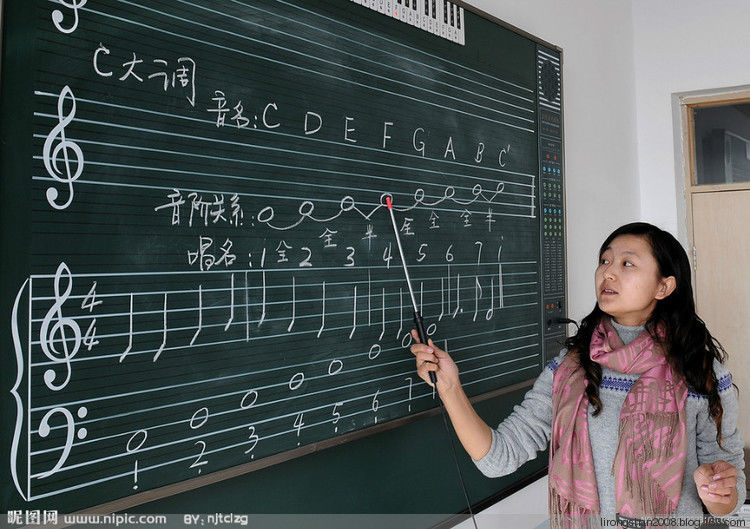 C大调
音名:C D E F G A B C'
音阶关系:
全 半 全 全 全 半
唱名:1 全 2 3 4 5 6 7 i
4
4
1 2 3 4 5 6 7
昵图网 www.nipic.com BY: njtclzg
lirongshan2008.blog.163.com